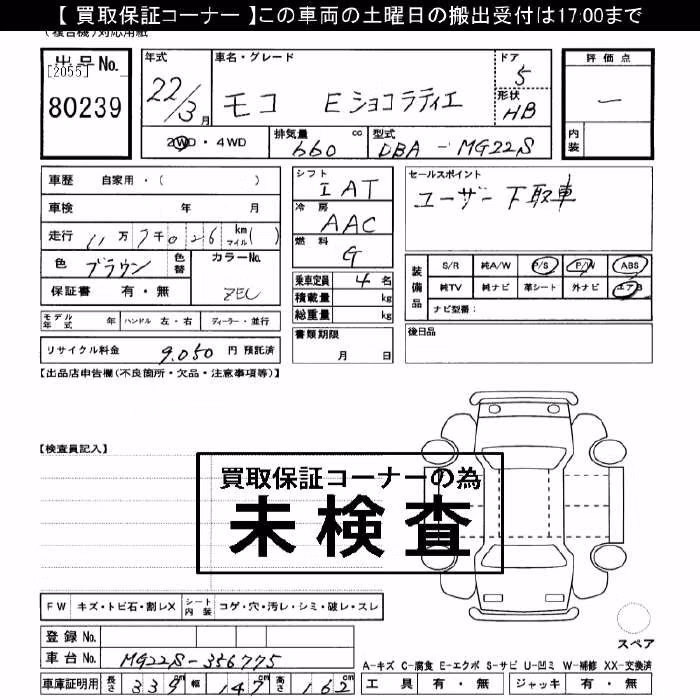 【 買取保証コーナー 】この車両の土曜日の搬出受付は17:00まで
出品No.
[2055]
80239
年式 車名・グレード ドア 5
22/3月 モコ Eショコラティエ 形状 HB
評価点
一
内装
2WD・4WD 排気量 660 cc 型式 DBA-MG22S
車歴 自家用・( )
車検 年 月
走行 11万7千026 km マイル( )
色 ブラウン 色替 カラーNo. ZEU
保証書 有・無
モデル年式 年 ハンドル 左・右 ディーラー・並行
リサイクル料金 9.050 円 預託済
シフト IAT
冷房 AAC
燃料 G
乗車定員 4 名
積載量 kg
総重量 kg
書類期限
月 日
セールスポイント
ユーザー下取車
装備品 S/R 純A/W P/S P/W ABS
純TV 純ナビ 革シート 外ナビ エアB
ナビ型番:
後日品
【出品店申告欄(不良箇所・欠品・注意事項等)】
【検査員記入】
買取保証コーナーの為
未検査
FW キズ・トビ石・割レX シート内装 コゲ・穴・汚レ・シミ・破レ・スレ
登録No.
車台No. MG22S-356775
車庫証明用 長さ 339cm 幅 147cm 高さ 162cm
スペア
A-キズ C-腐食 E-エクボ S-サビ U-凹ミ W-補修 XX-交換済
工具 有・無 ジャッキ 有・無